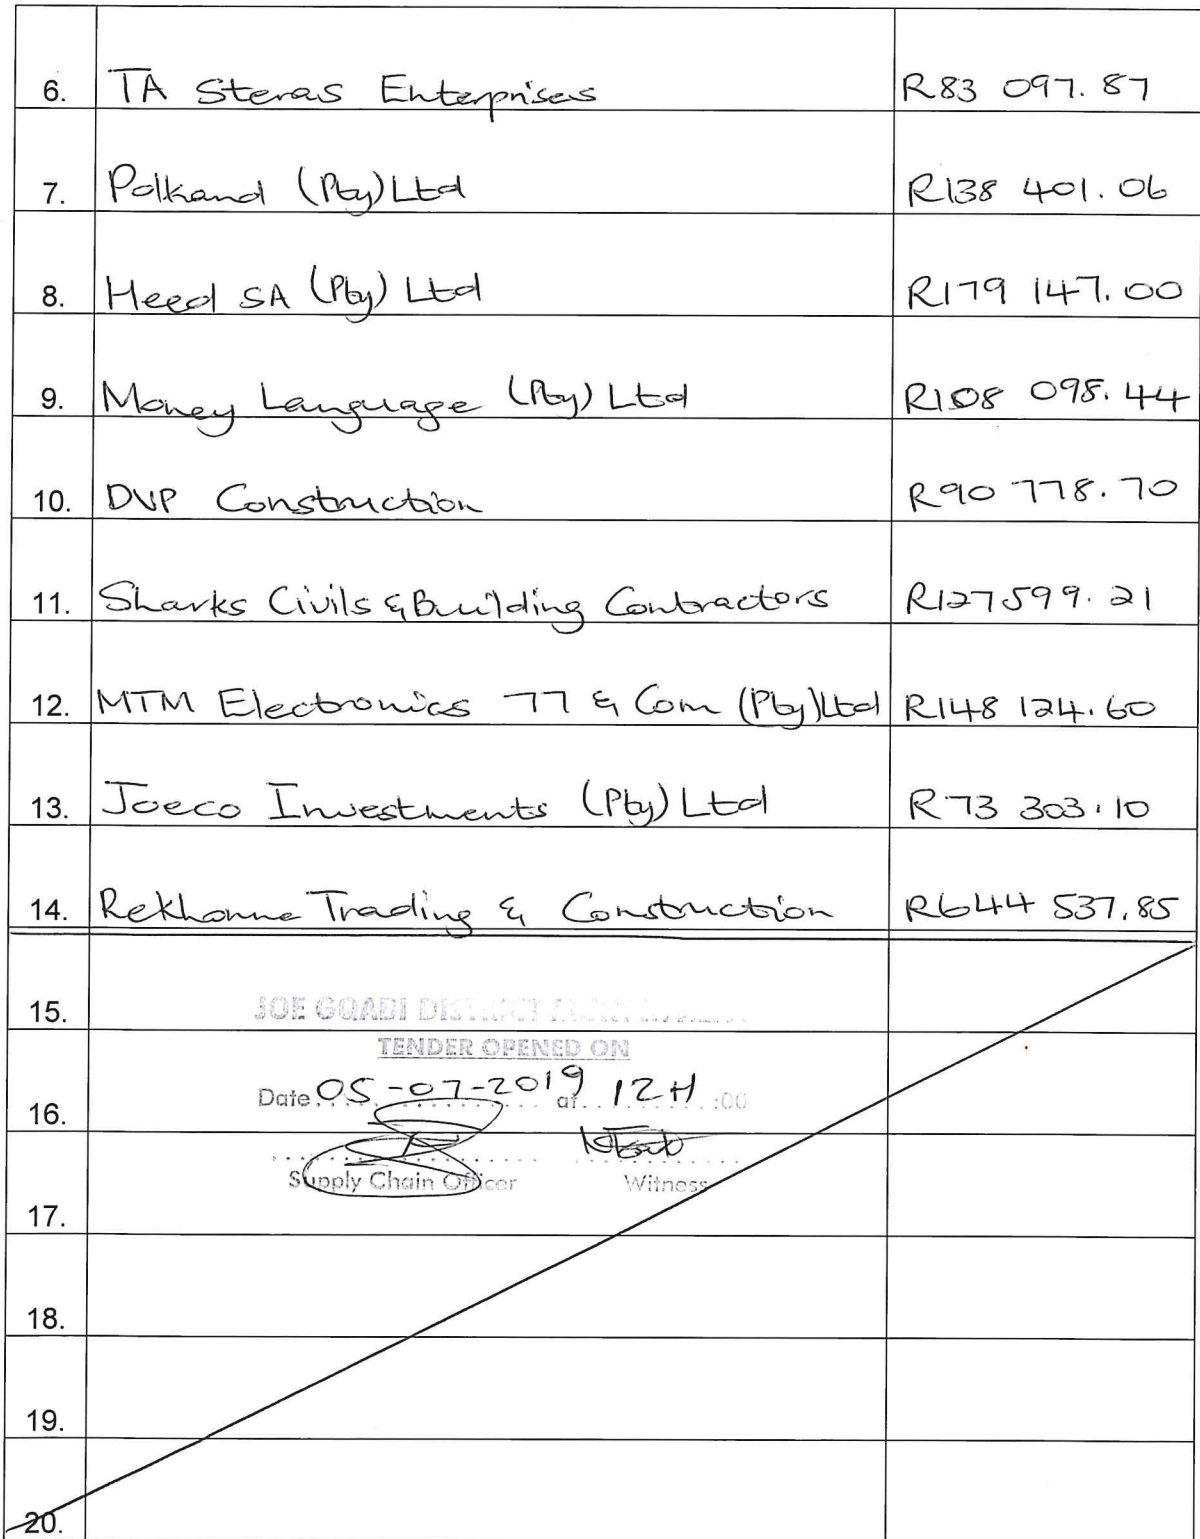 6. TA Steras Enterprises R83 097.87
7. Polkand (Pty) Ltd R138 401.06
8. Heed SA (Pty) Ltd R179 147.00
9. Money Language (Pty) Ltd R108 098.44
10. DVP Construction R90 778.70
11. Sharks Civils & Building Contractors R127 599.21
12. MTM Electronics 77 & Com (Pty) Ltd R148 124.60
13. Joeco Investments (Pty) Ltd R73 303.10
14. Rekhonne Trading & Construction R644 537.85
15.
JOE GQABI DISTRICT
TENDER OPENED ON
Date 05-07-2019 at 12H :00
16.
Supply Chain Officer Witness
17.
18.
19.
20.